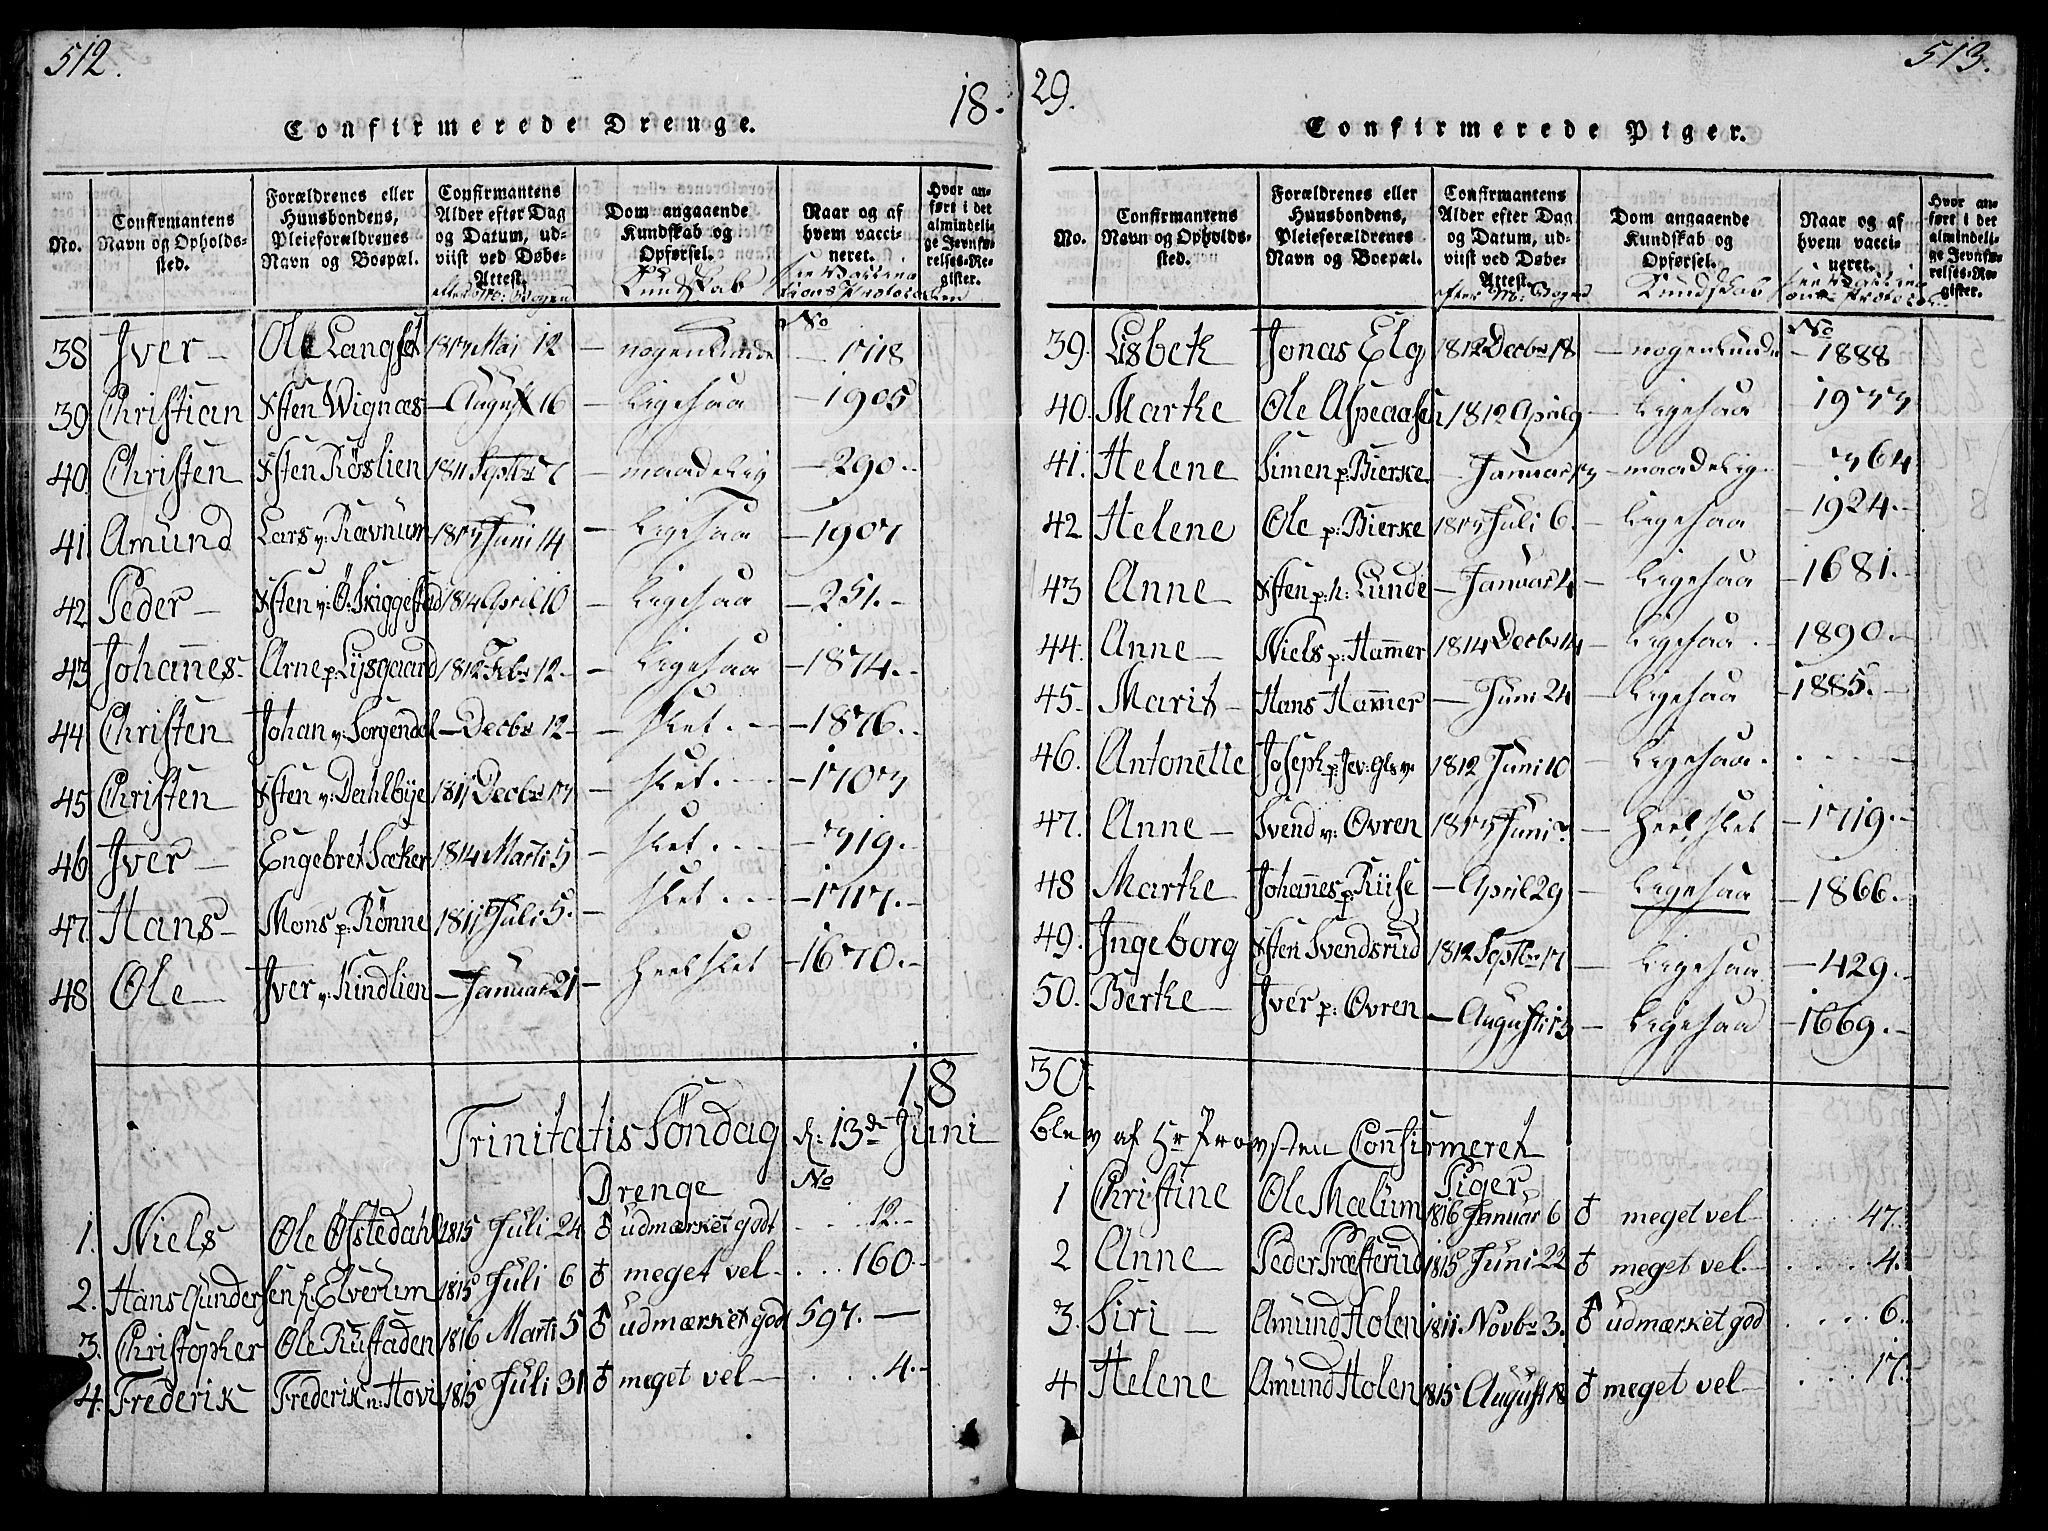 512.
18.
Confirmerede Drenge.
No.
Confirmantens Navn og Opholdssted.
Forældrenes eller Huusbondens, Pleieforældrenes Navn og Boepæl.
Confirmantens Alder efter Dag og Datum, udviist ved Døbe-Attest.
Dom angaaende Kundskab og Opførsel.
Kundskab
Naar og af hvem vaccineret.
Hvor anført i det almindelige Jevnførelses-Register.
No
38 Iver – Ole Langset Mai 12 – nogenlunde – 1718
39 Christian Xsten Wignæs – August 16 – Ligesaa – 1905
40 Christen Xsten Röslien 1811 Septbr 7 – maadelig – 290.-
41 Amund Lars v: Ravnum Juni 14 – Ligesaa – 1907
42 Peder – Xsten v: Ö: Skiggestad 1814 April 10 – Ligesaa – 251.-
43 Johannes- Arne p: Lysgaard 1812 Febr 12.- – Ligesaa – 1874.-
44 Christen Johan v: Sorgendal – Decbr 12- – slet. – – 1876.-
45 Christen Xsten v: Dahlbye 1811 Decbr – slet. – – 1707
46 Iver – Engebret Sæker 1814 Marti 5 – slet . – – 719.-
47. Hans- Mons p: Rönne 1811 Juli 5. – slet . – – 1717.-
48 Ole – Iver v: Kindlien – Januar 21 – heel slet – 1670.-
18
Trinitatis Söndag d: 13de Juni
Drenge No
1. Niels Ole Östedahl 1815 Juli 24 ♁ udmærket godt . . . 12.-
2. Hans Gundersen f: Elverum 1815 Juli 6 ♁ meget vel – . . . 160-
3. Christopher Ole Rustaden 1816 Marti 5 ♁ udmærket god 597. –
4. Frederik Frederik n: Hovi 1815 Juli 31 ♁ meget vel – . . . 4.-
29.
513.
Confirmerede Piger.
No.
Confirmantens Navn og Opholdssted.
Forældrenes eller Huusbondens, Pleieforældrenes Navn og Boepæl.
Confirmantens Alder efter Dag og Datum, udviist ved Døbe-Attest.
Dom angaaende Kundskab og Opførsel.
Kundskab
Naar og af hvem vaccineret.
Hvor anført i det almindelige Jevnførelses-Register.
No
39. Lisbeth Jonas Elg 1812 Decbr 18 – nogenlunde – 1888
40. Marthe Ole Aspeaasen 1812 April 9 – Ligesaa – 1977
41. Helene Simen p: Bierke – Januar – maadelig. – 764
42 Helene Ole p: Bierke Juli 6. – Ligesaa – 1924.-
43 Anne Xsten p: h: Lunde – Januar 4 – Ligesaa – 1681.-
44. Anne – Niels p: Hammer 1814 Decbr 14 – Ligesaa . – 1890.-
45. Marit – Hans Hammer – Juni 24 – Ligesaa – 1885.-
46. Antonette Joseph p: 1812 Juni 10 – Ligesaa. . . . .
47. Anne – Svend v: Øvren Juni – heel slet – 1719.-
48 Marthe Johannes p: Riise – April 29 – Ligesaa – 1866.-
49. Ingeborg Xsten Svendsrud 1812 Septbr 17 – Ligesaa. – 429.-
50. Berthe – Iver p: Øvren – Augusti 15 – Ligesaa – 1669.-
30.
blev af Hr Provsten Confirmeret
Piger
1 Christine Ole Mælum 1816 Januar 6 ♁ meget vel – . . . . 47.
2 Anne Peder Præsterud 1815 Juni 22 ♁ meget vel. – . . . . 4.
3. Siri – Amund Holen 1811. Novbr 3. ♁ udmærket god . . . . 6.
4 Helene Amund Holen 1815 August 18 ♁ meget vel – . . . 17.